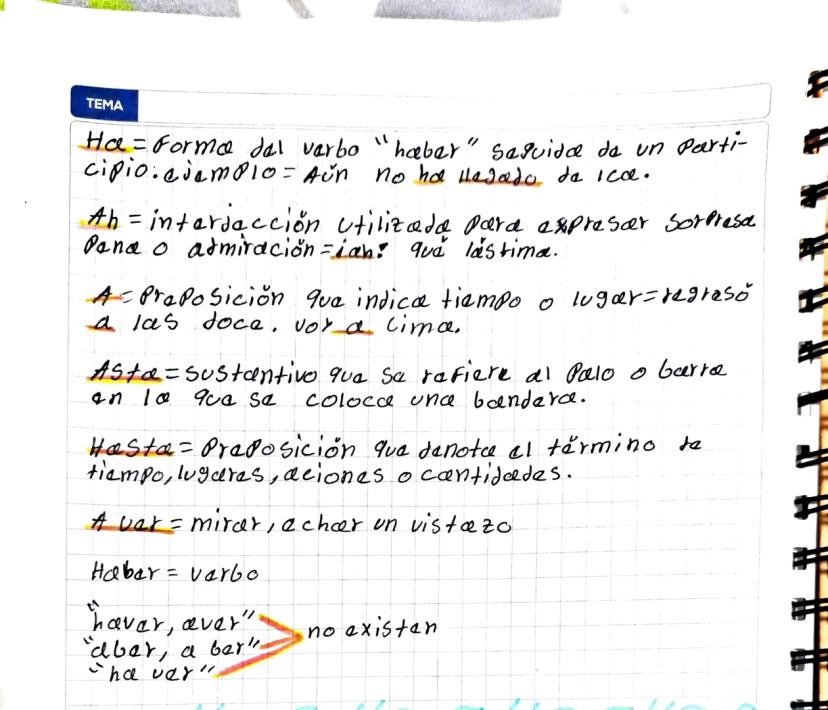 TEMA
Ha = Forma del verbo "haber" seguida de un parti-
cipio. ejemplo = Aún no ha llegado de Ica.
Ah = interjección utilizada para expresar sorpresa
pena o admiración = ¡ah! qué lástima.
A = Preposición que indica tiempo o lugar = regresó
a las doce. voy a Lima.
Asta = sustantivo que se refiere al palo o barra
en la que se coloca una bandera.
Hasta = Preposición que denota el término de
tiempo, lugares, aciones o cantidades.
A ver = mirar, echar un vistazo
Haber = verbo
"haver, aver"
"aber, a ber" no existen
"ha ver"